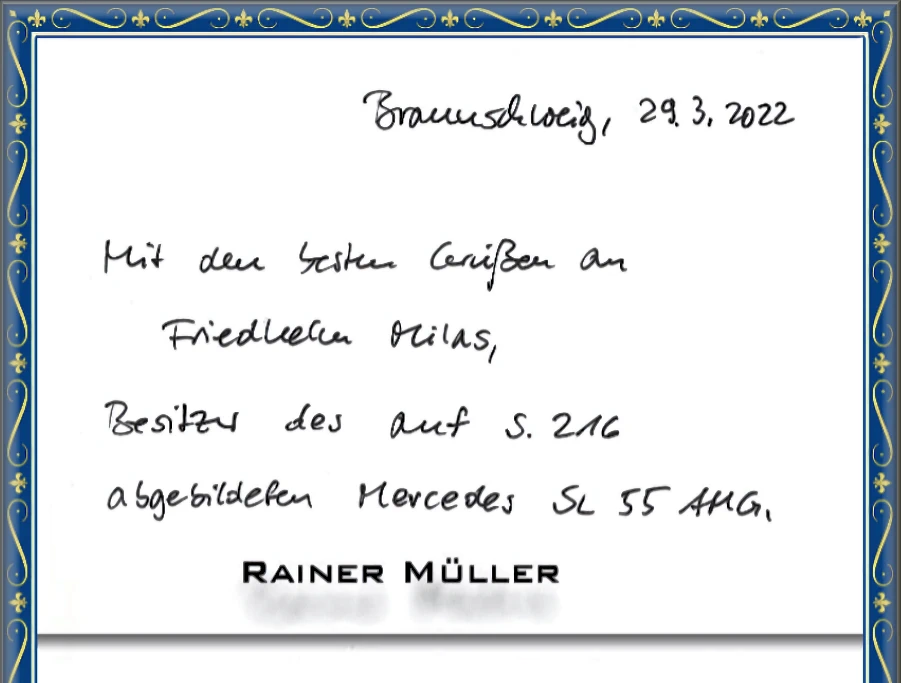 Braunschweig, 29.3.2022
Mit den besten Grüßen an
Friedhelm Milas,
Besitzer des auf S. 216
abgebildeten Mercedes SL 55 AMG.
RAINER MÜLLER